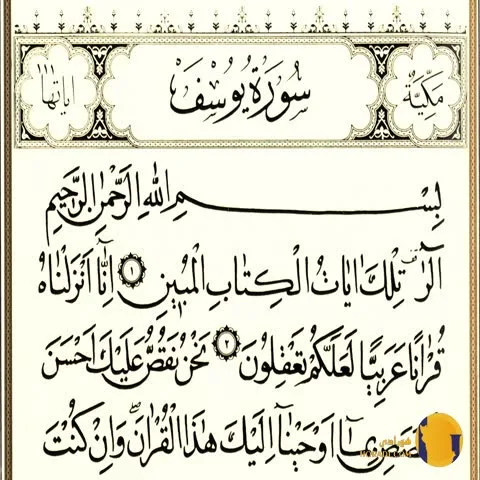 مَكِّيَّةٌ سُورَةُ يُوسُفَ اٰيَاتُهَا ١١١
بِسْمِ اللّٰهِ الرَّحْمٰنِ الرَّحِيمِ
الٓرٰ تِلْكَ اٰيَاتُ الْكِتَابِ الْمُبِينِ ١ اِنَّٓا اَنْزَلْنَاهُ
قُرْاٰنًا عَرَبِيًّا لَعَلَّكُمْ تَعْقِلُونَ ٢ نَحْنُ نَقُصُّ عَلَيْكَ اَحْسَنَ
بِمَٓا اَوْحَيْنَٓا اِلَيْكَ هٰذَا الْقُرْاٰنَ وَاِنْ كُنْتَ